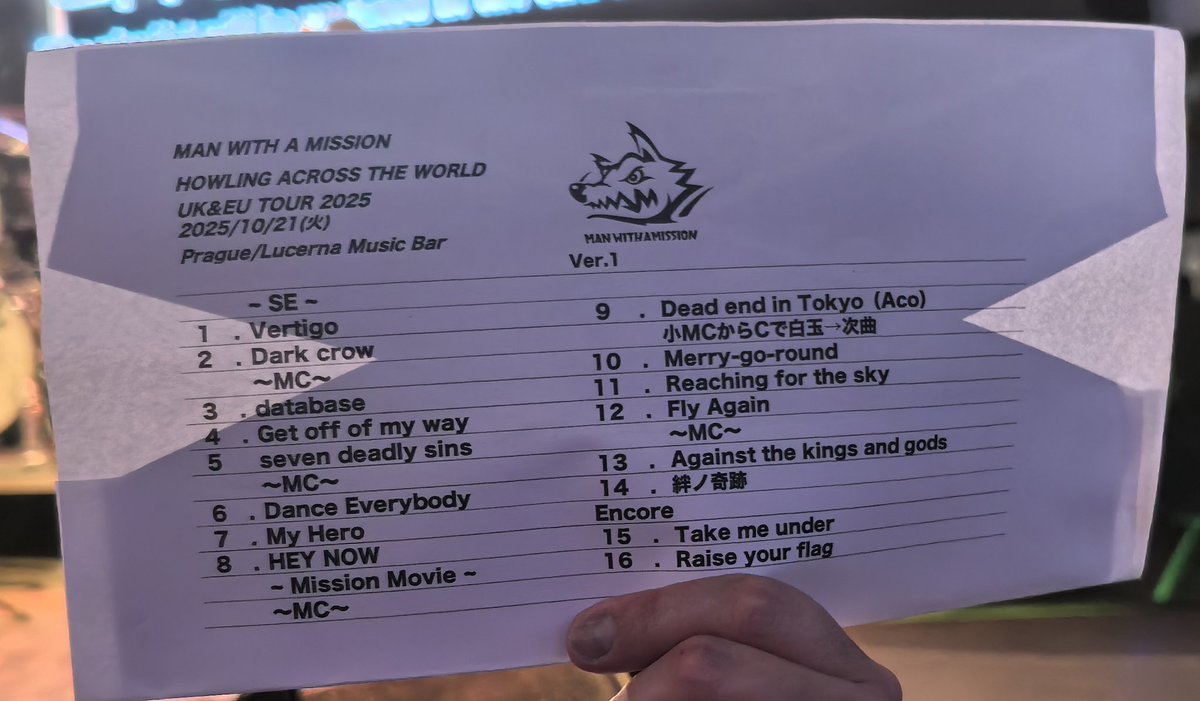 MAN WITH A MISSION
HOWLING ACROSS THE WORLD
UK&EU TOUR 2025
2025/10/21(火)
Prague/Lucerna Music Bar
MAN WITH A MISSION
Ver.1
~ SE ~
1 . Vertigo
2 . Dark crow
〜MC〜
3 . database
4 . Get off of my way
5 seven deadly sins
〜MC〜
6 . Dance Everybody
7 . My Hero
8 . HEY NOW
~ Mission Movie ~
〜MC〜
9 . Dead end in Tokyo（Aco）
小MCからCで白玉→次曲
10 . Merry-go-round
11 . Reaching for the sky
12 . Fly Again
〜MC〜
13 . Against the kings and gods
14 . 絆ノ奇跡
Encore
15 . Take me under
16 . Raise your flag